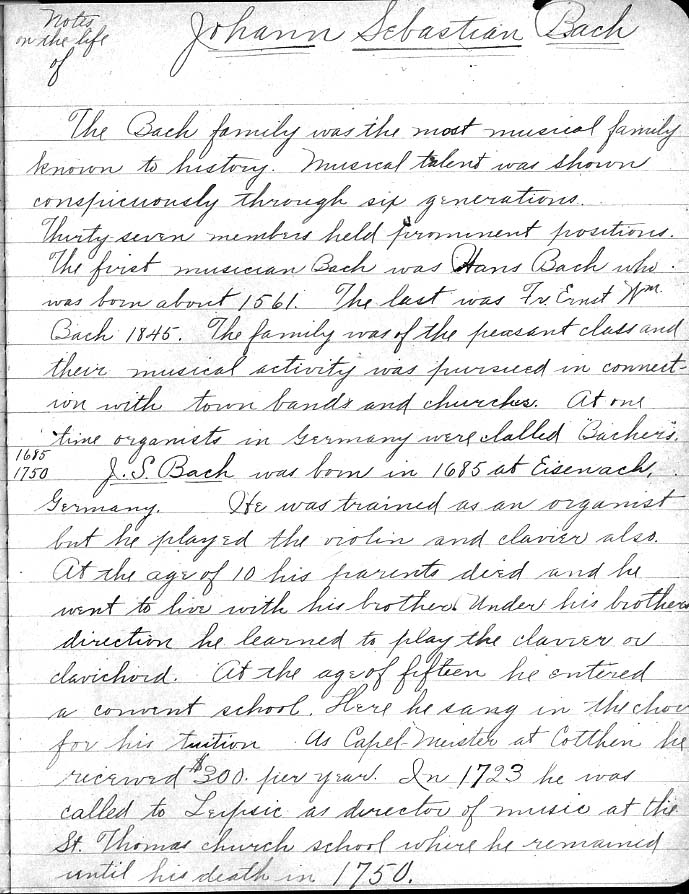 Notes
on the life
of
Johann Sebastian Bach
The Bach family was the most musical family
known to history. Musical talent was shown
conspicuously through six generations.
Thirty-seven members held prominent positions.
The first musician Bach was Hans Bach who
was born about 1561. The last was Fr. Ernst Wm.
Bach 1845. The family was of the peasant class and
their musical activity was pursued in connect-
ion with town bands and churches. At one
time organists in Germany were clalled "Bachers".
1685
1750
J. S. Bach was born in 1685 at Eisenach,
Germany. He was trained as an organist
but he played the violin and clavier also.
At the age of 10 his parents died and he
went to live with his brother. Under his brothers
direction he learned to play the clavier or
clavichord. At the age of fifteen he entered
a convent school. Here he sang in the choir
for his tuition. As Capel-Meister at Cotthen he
received $300. per year. In 1723 he was
called to Leipsic as director of music at the
St. Thomas church school where he remained
until his death in 1750.